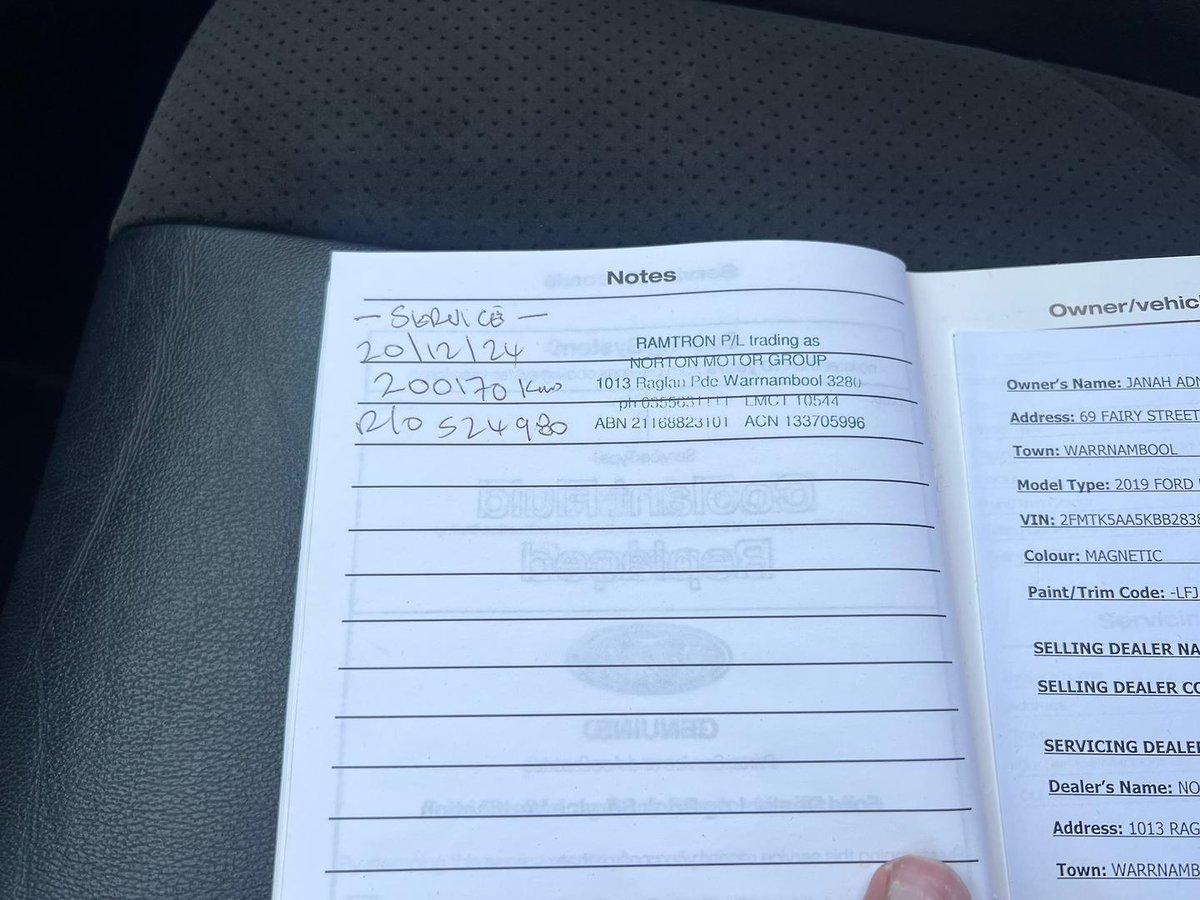 Notes
- SERVICE -
20/12/24
200170 Kms
R/O 524980
RAMTRON P/L trading as
NORTON MOTOR GROUP
1013 Raglan Pde Warrnambool 3280
ph 0355631111 LMCT 10544
ABN 21168823101 ACN 133705996
Owner/vehic
Owner's Name: JANAH ADN
Address: 69 FAIRY STREET
Town: WARRNAMBOOL
Model Type: 2019 FORD
VIN: 2FMTK5AA5KBB2838
Colour: MAGNETIC
Paint/Trim Code: -LFJ
SELLING DEALER NA
SELLING DEALER CO
SERVICING DEALER
Dealer's Name: NO
Address: 1013 RAG
Town: WARRNAMB